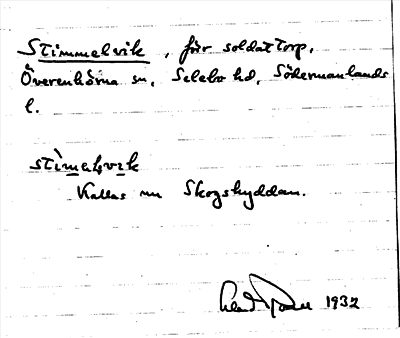 Stimmelvik, förr soldattorp,
Överenhörna sn, Selebo hd, Södermanlands
l.
stìmelvik
Kallas nu Skogshyddan.
1932